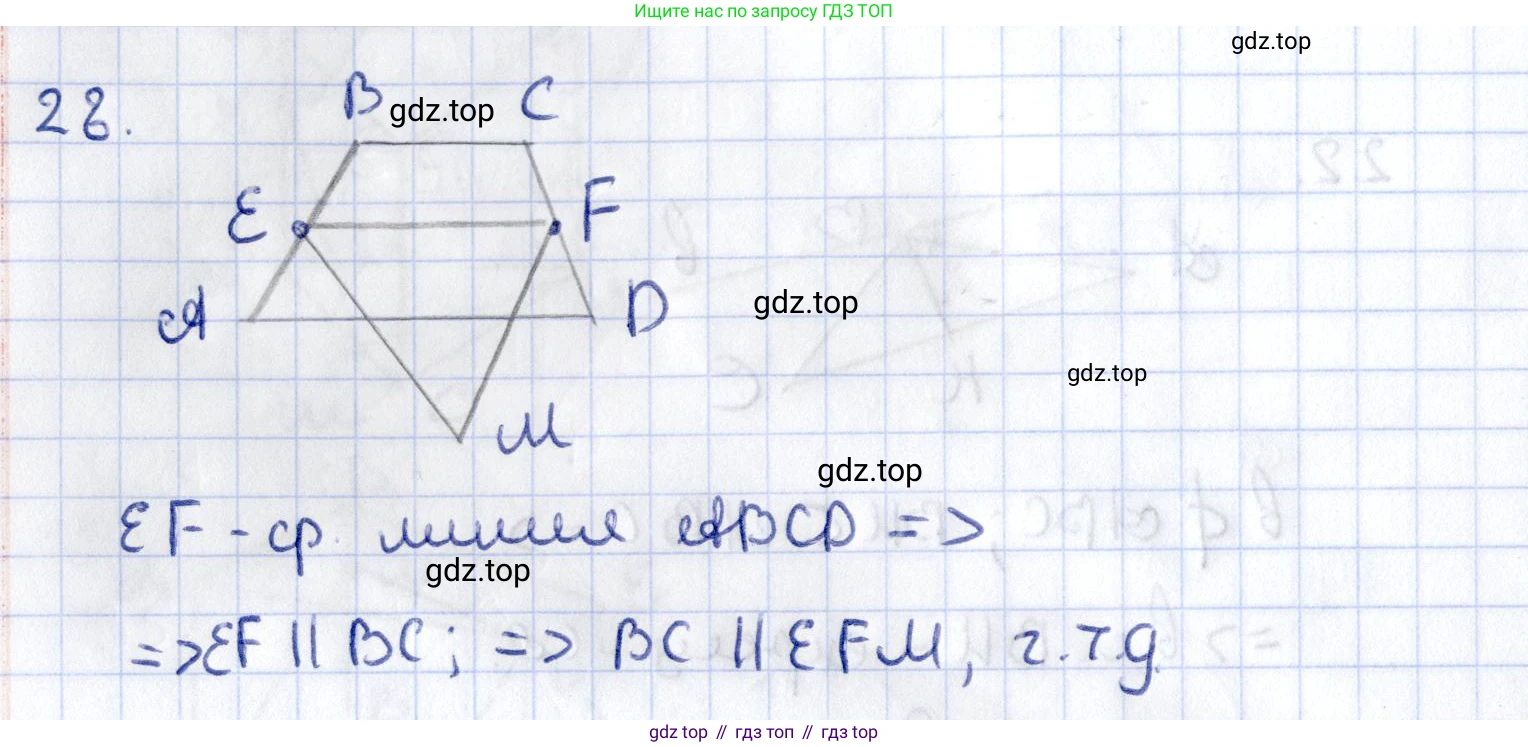 Ищите нас по запросу ГДЗ ТОП
gdz.top
28.
B gdz.top C
E F
A D gdz.top
gdz.top
M
gdz.top
EF - ср. линия ABCD =>
gdz.top
=> EF || BC; => BC || EFM, ч.т.д.
gdz top // гдз топ // гдз top